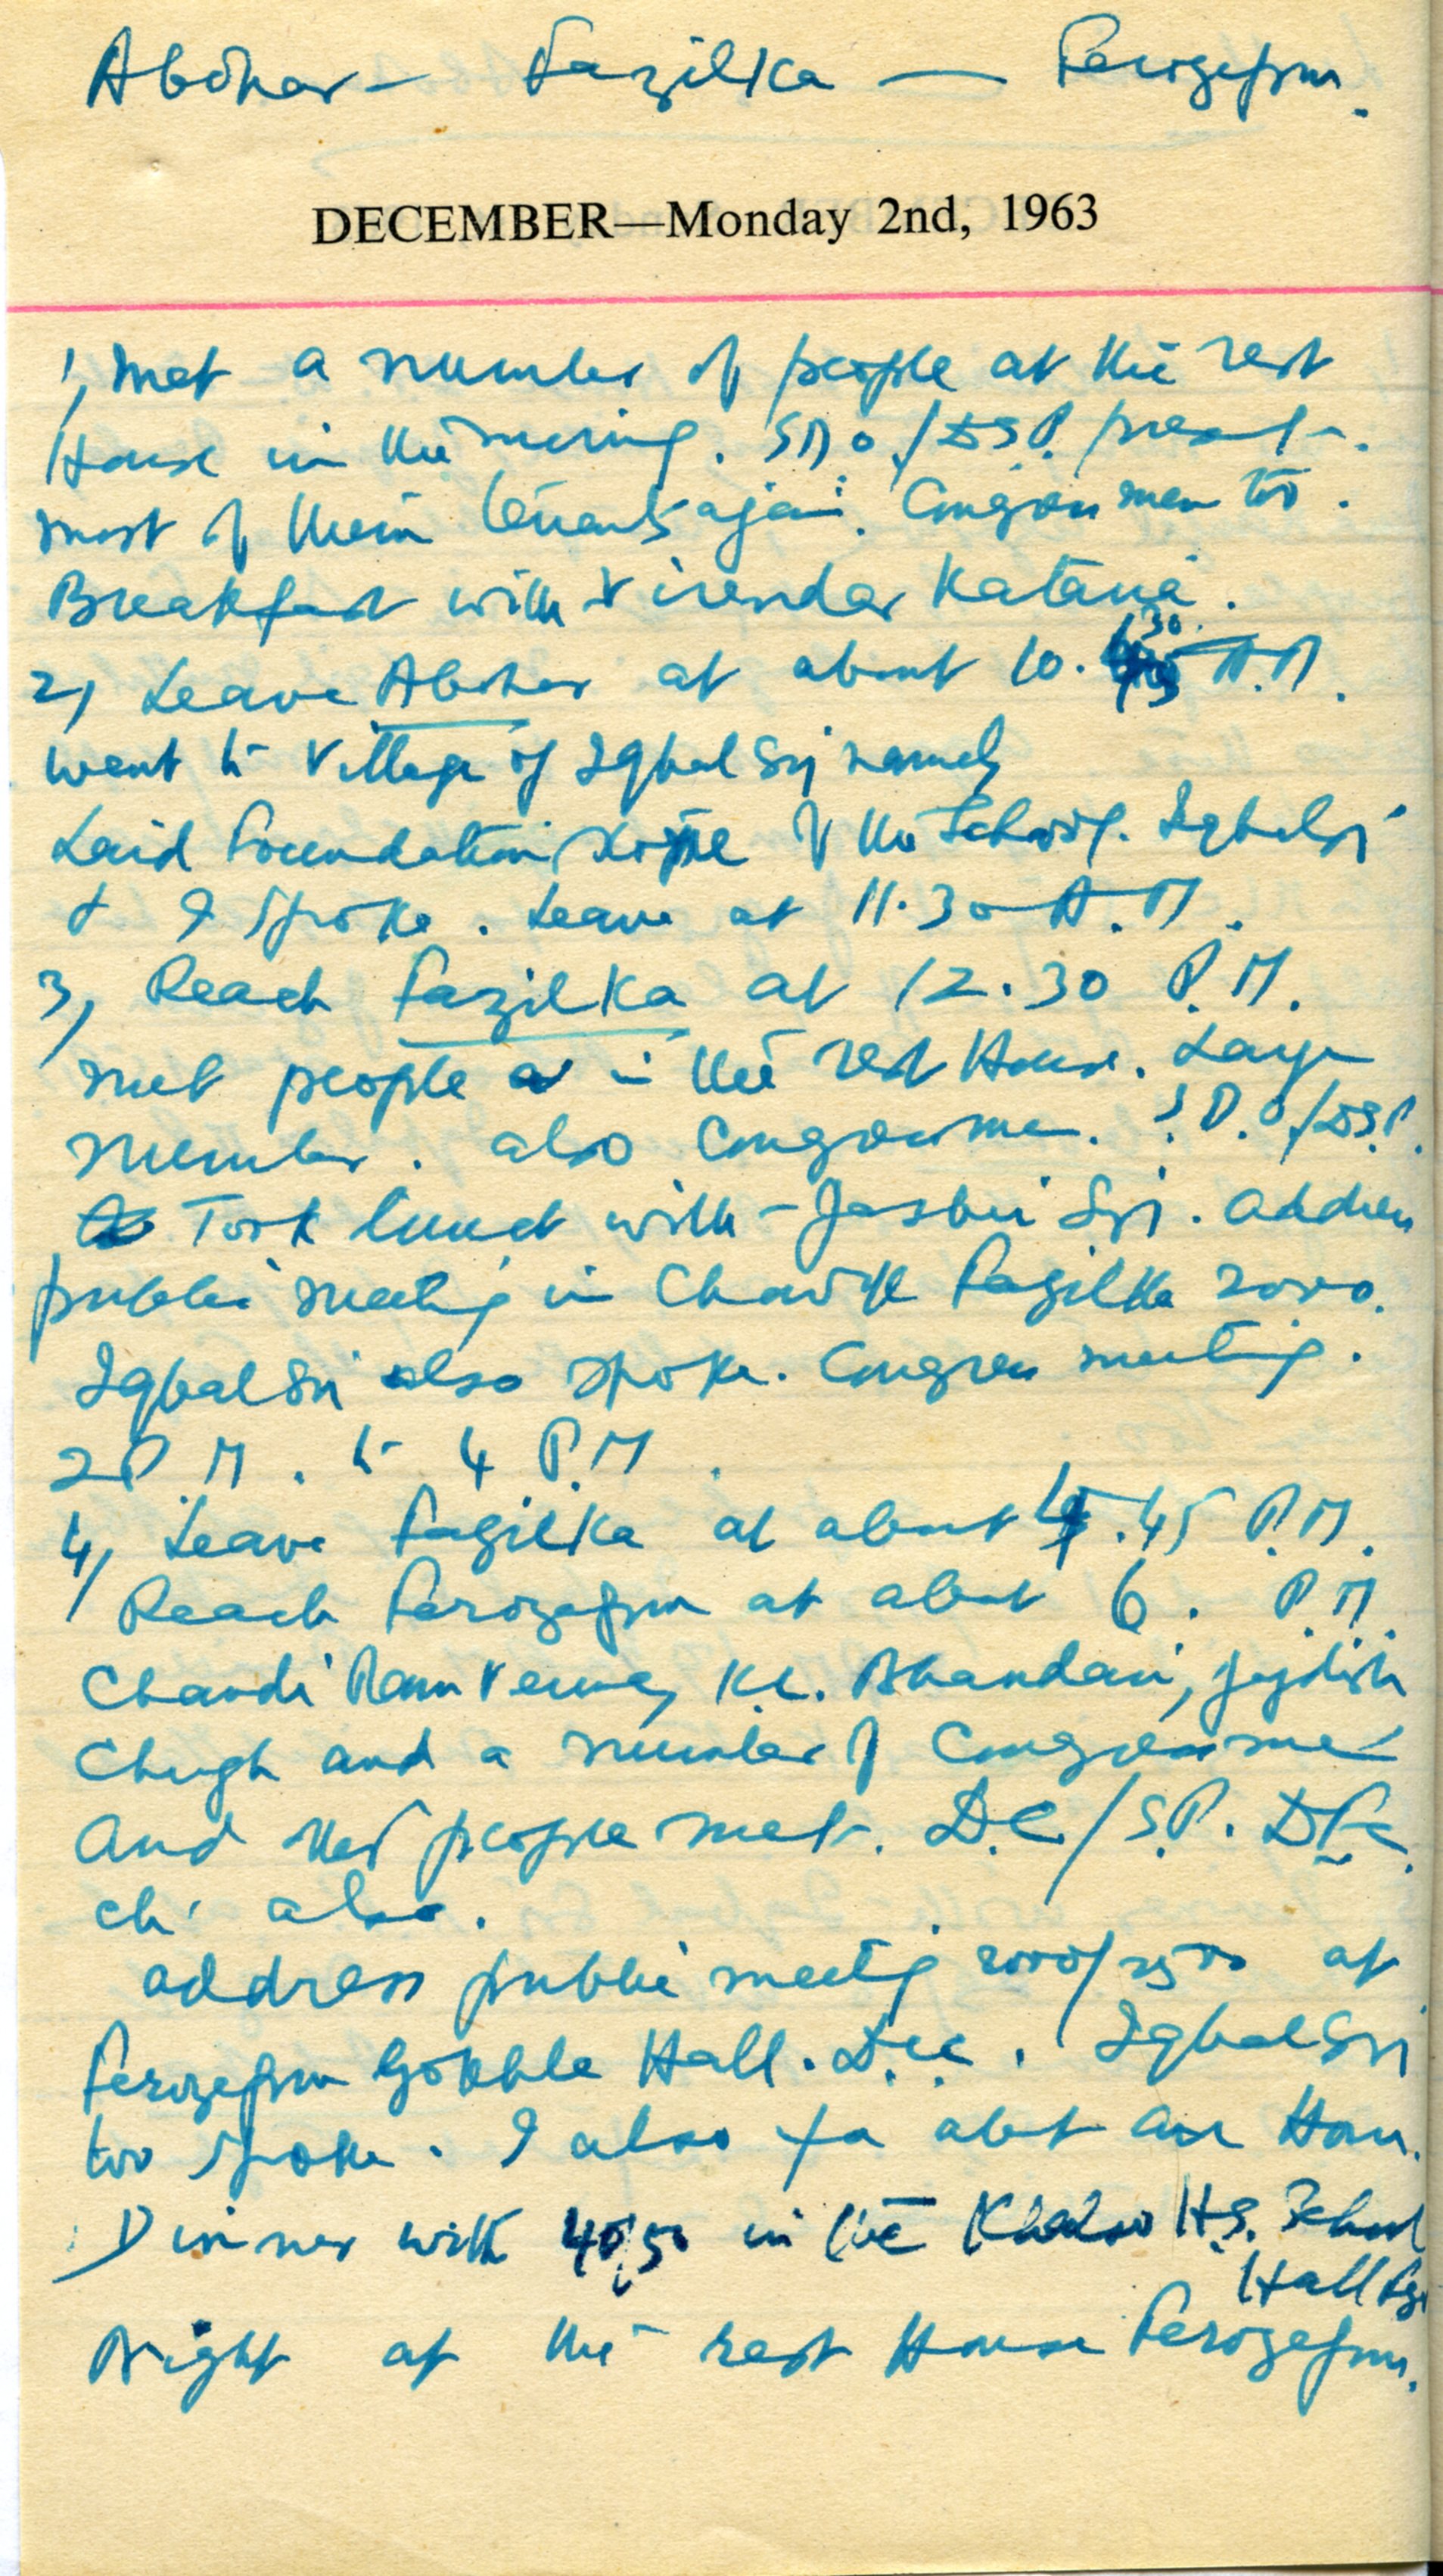 Abohar — Fazilka — Ferozepur.
DECEMBER—Monday 2nd, 1963
1, Met a number of people at the rest
House in the morning. SDO./DSP. present.
most of them tenants again. Congressmen too.
Breakfast with Virender Kataria.
2, Leave Abohar at about 10.30 A.M.
went to Village of Iqbal Singh namely
Laid Foundation stone of the School. Iqbal Singh
& I spoke. Leave at 11.30 A.M.
3, Reach Fazilka at 12.30 P.M.
met people in the rest House. Large
Number. also Congressmen. S.D.O./DSP.
Took lunch with - Jasbir Singh. address
public meeting in Chowk Fazilka 2000.
Iqbal Singh also spoke. Congress meeting.
2 P.M. to 4 P.M.
4, Leave Fazilka at about 4.45 P.M.
Reach Ferozepur at about 6. P.M.
Chandi Ram Verma, K.C. Bhandari, Jagdish
Chugh and a number of Congressmen
and other people met. D.C./S.P.
also.
address public meeting 2000/2500 at
Ferozepur Gokhle Hall. Iqbal Singh
too spoke. I also for abt an Hour.
Dinner with 40/50 in the Khalsa H.S. School
Hall
Night at the rest House Ferozepur.